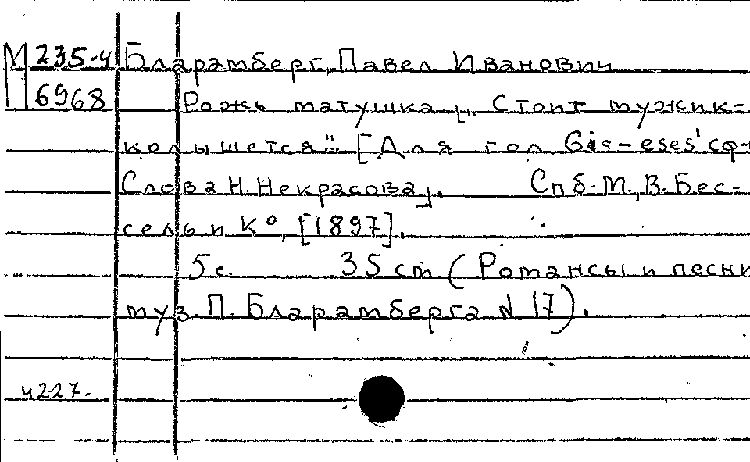 М 235-4 Бларамберг, Павел Иванович
П 6968 Рожь матушка „ Стоит мужик-
колышется" [Для гол Gis-eses' с ф-
Слова Н. Некрасова]. Спб-М., В. Бес-
сель и К°, [1897].
5 с. 35 cm (Романсы и песни
муз. П. Бларамберга N 17).
ч227-